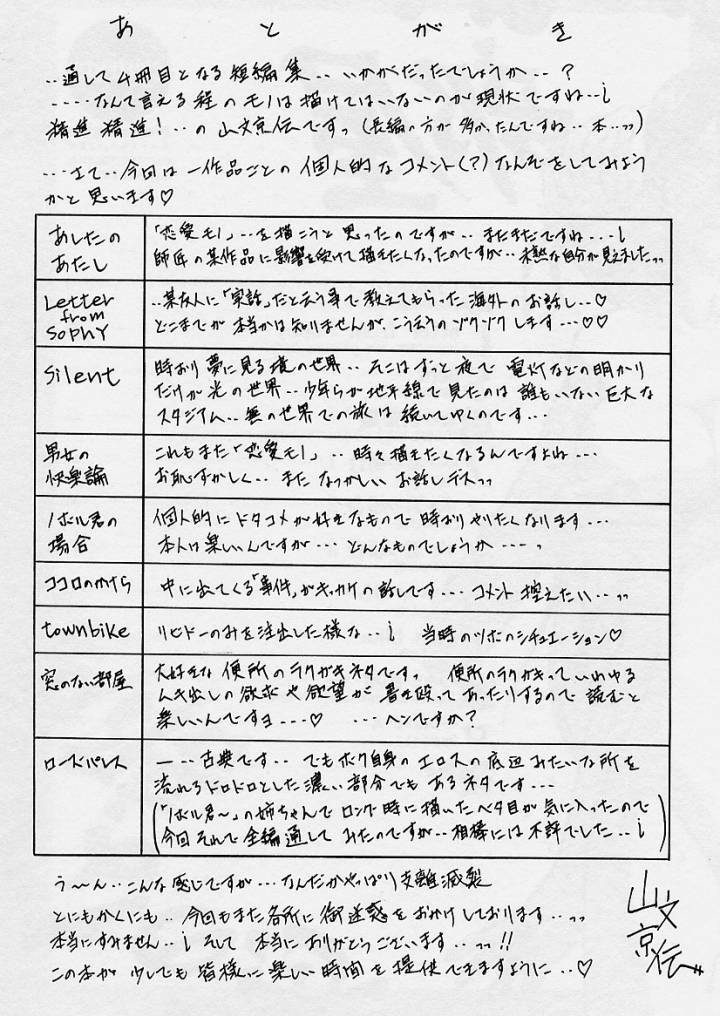 あとがき
‥通して4冊目となる短編集‥いかがだったでしょうか‥?
‥‥なんて言える程のモノは描けてはいないのが現状ですね‥¡
精進精進!‥の山文京伝ですっ(長編の方が多かったんですね‥本‥ッッ)
‥さて‥今回は一作品ごとの個人的なコメント(?)なんぞをしてみよう
かと思います♡
あしたの
あたし
「恋愛モノ」‥を描こうと思ったのですが‥まだまだですね‥‥¡
師匠の某作品に影響を受けて描きたくなったのですが‥未熟な自分が見えましたッッ
Letter
from
SOPHY
‥某友人に「実話」だと云う事で教えてもらった海外のお話し‥♡
どこまでが本当かは知りませんが、こう云うのゾクゾクします‥‥♡♡
Silent
時おり夢に見る境の世界‥そこはずっと夜で電灯などの明かり
だけが光の世界‥少年らが地平線で見たのは誰もいない巨大な
スタジアム‥無の世界での旅は続いてゆくのです‥‥
男女の
快楽論
これもまた「恋愛モノ」‥時々描きたくなるんですよね‥‥
お恥ずかしく‥またなつかしいお話しデスッッ
ノボル君の
場合
個人的にドタコメが好きなもので時おりやりたくなります‥‥
本人は楽しいんですが‥‥どんなものでしょうか‥‥っ
ココロのかけら
中に出てくる「事件」がキッカケの話しです‥‥コメント控えたい‥ッッ
townbike
リビドーのみを注出した様な‥¡ 当時のツボのシチュエーション♡
窓のない部屋
大好きな便所のラクガキネタですっ 便所のラクガキっていわゆる
ムキ出しの欲求や欲望が書き殴ってあったりするので読むと
楽しいんですヨ‥‥♡ ‥‥ヘンですか?
ローズパレス
‥‥古典です‥でもボク自身のエロスの底辺みたいな所を
流れるドロドロとした濃い部分でもあるネタです‥‥
(「ノボル君〜」の姉ちゃんでロング時に描いたベタ目が気に入ったので
今回それで全編通してみたのですが‥相棒には不評でした‥¡)
う〜ん‥こんな感じですが‥‥なんだかやっぱり支離滅裂
とにもかくにも‥今回もまた各所に御迷惑をおかけしております‥ッッ
本当にすみません‥¡そして本当にありがとうございます‥ッッ!!
この本が少しでも皆様に楽しい時間を提供できますように‥♡
山文
京伝